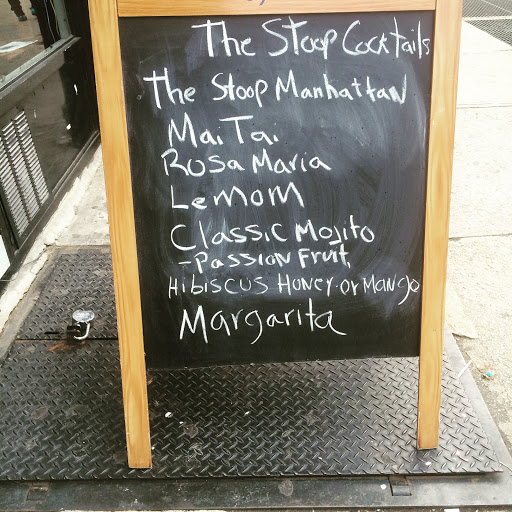 The Stoop Cocktails
The Stoop Manhattan
Mai Tai
Rosa Maria
LeMoM
Classic Mojito
-Passion Fruit,
Hibiscus Honey or Mango
Margarita